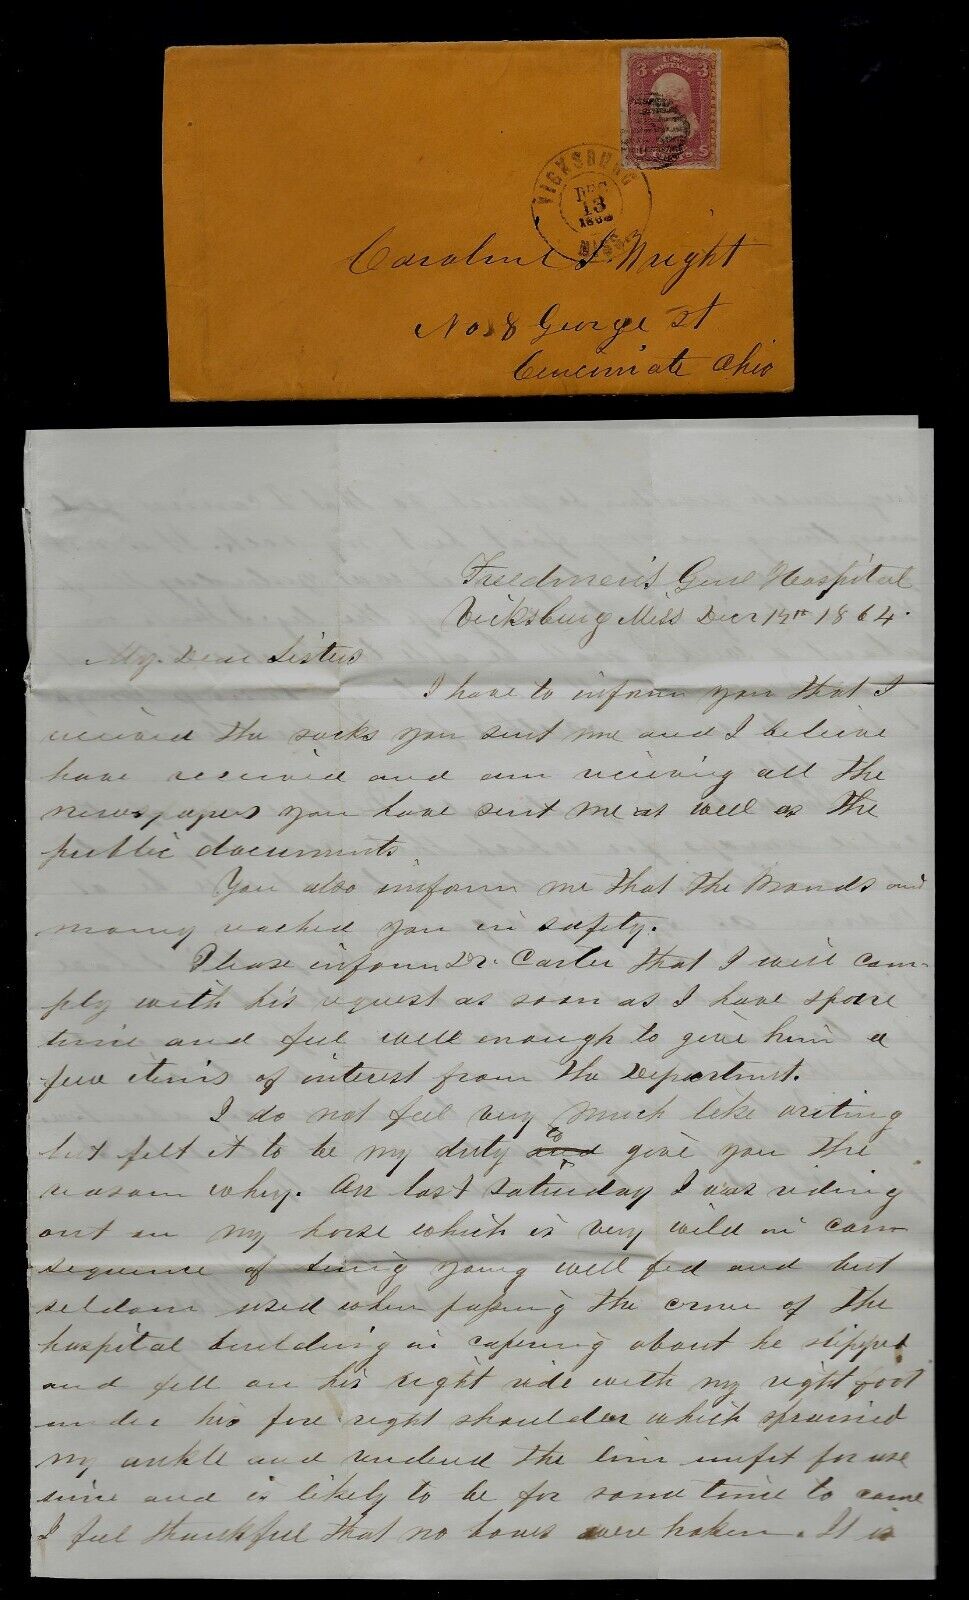 U.S. POSTAGE
3 3
VICKSBURG
DEC
13
MISS.
Caroline S. Wright
No 8 George St
Cincinnate Ohio
Freedmen's Genl Hospital
Vicksburg Miss Decr 1864.
My Dear Sisters
I have to inform you that I
received the socks you sent me and I believe
have received and am reciving all the
newspapers you have sent me as well as the
public documents
You also inform me that the Bonds and
money reached you in safety.
Please inform Dr. Carter that I will com-
ply with his request as soon as I have spare
time and feel well enough to give him a
few items of interest from the Department.
I do not feel very much like writing
but felt it to be my duty and to give you the
reason why. On last Saturday I was riding
out on my horse which is very wild in con
sequence of being young well fed and but
seldom used when passing the corner of the
hospital building in capering about he slipped
and fell on his right side with my right foot
under his fore right shoulder which sprained
my ankle and rendered the limb unfit for use
since and is likely to be for some time to come
I feel thankful that no bones were broken. It is